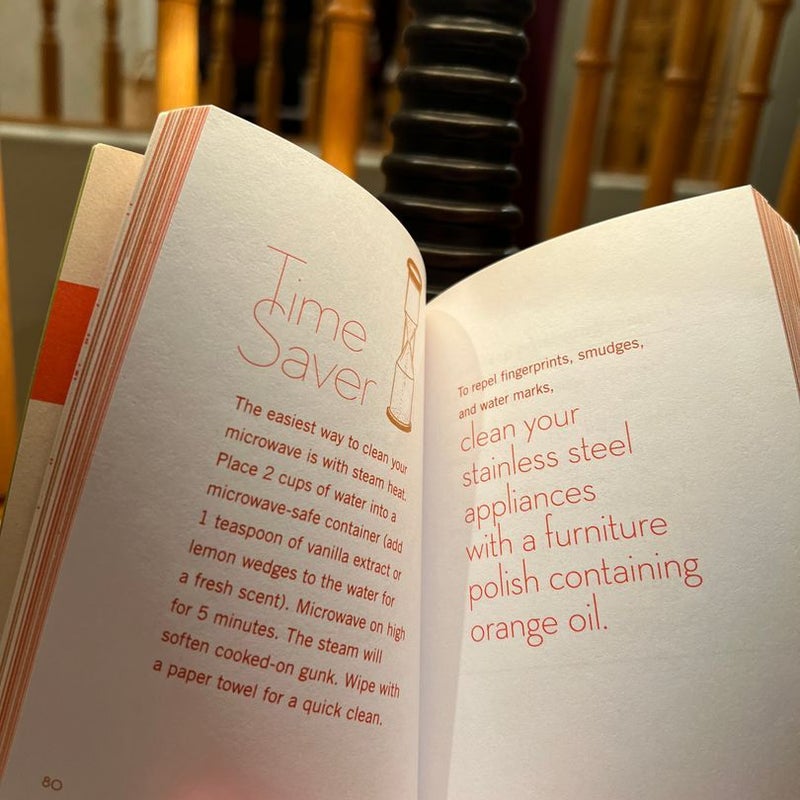 Time
Saver
The easiest way to clean your
microwave is with steam heat.
Place 2 cups of water into a
microwave-safe container (add
1 teaspoon of vanilla extract or
lemon wedges to the water for
a fresh scent). Microwave on high
for 5 minutes. The steam will
soften cooked-on gunk. Wipe with
a paper towel for a quick clean.
80
To repel fingerprints, smudges,
and water marks,
clean your
stainless steel
appliances
with a furniture
polish containing
orange oil.